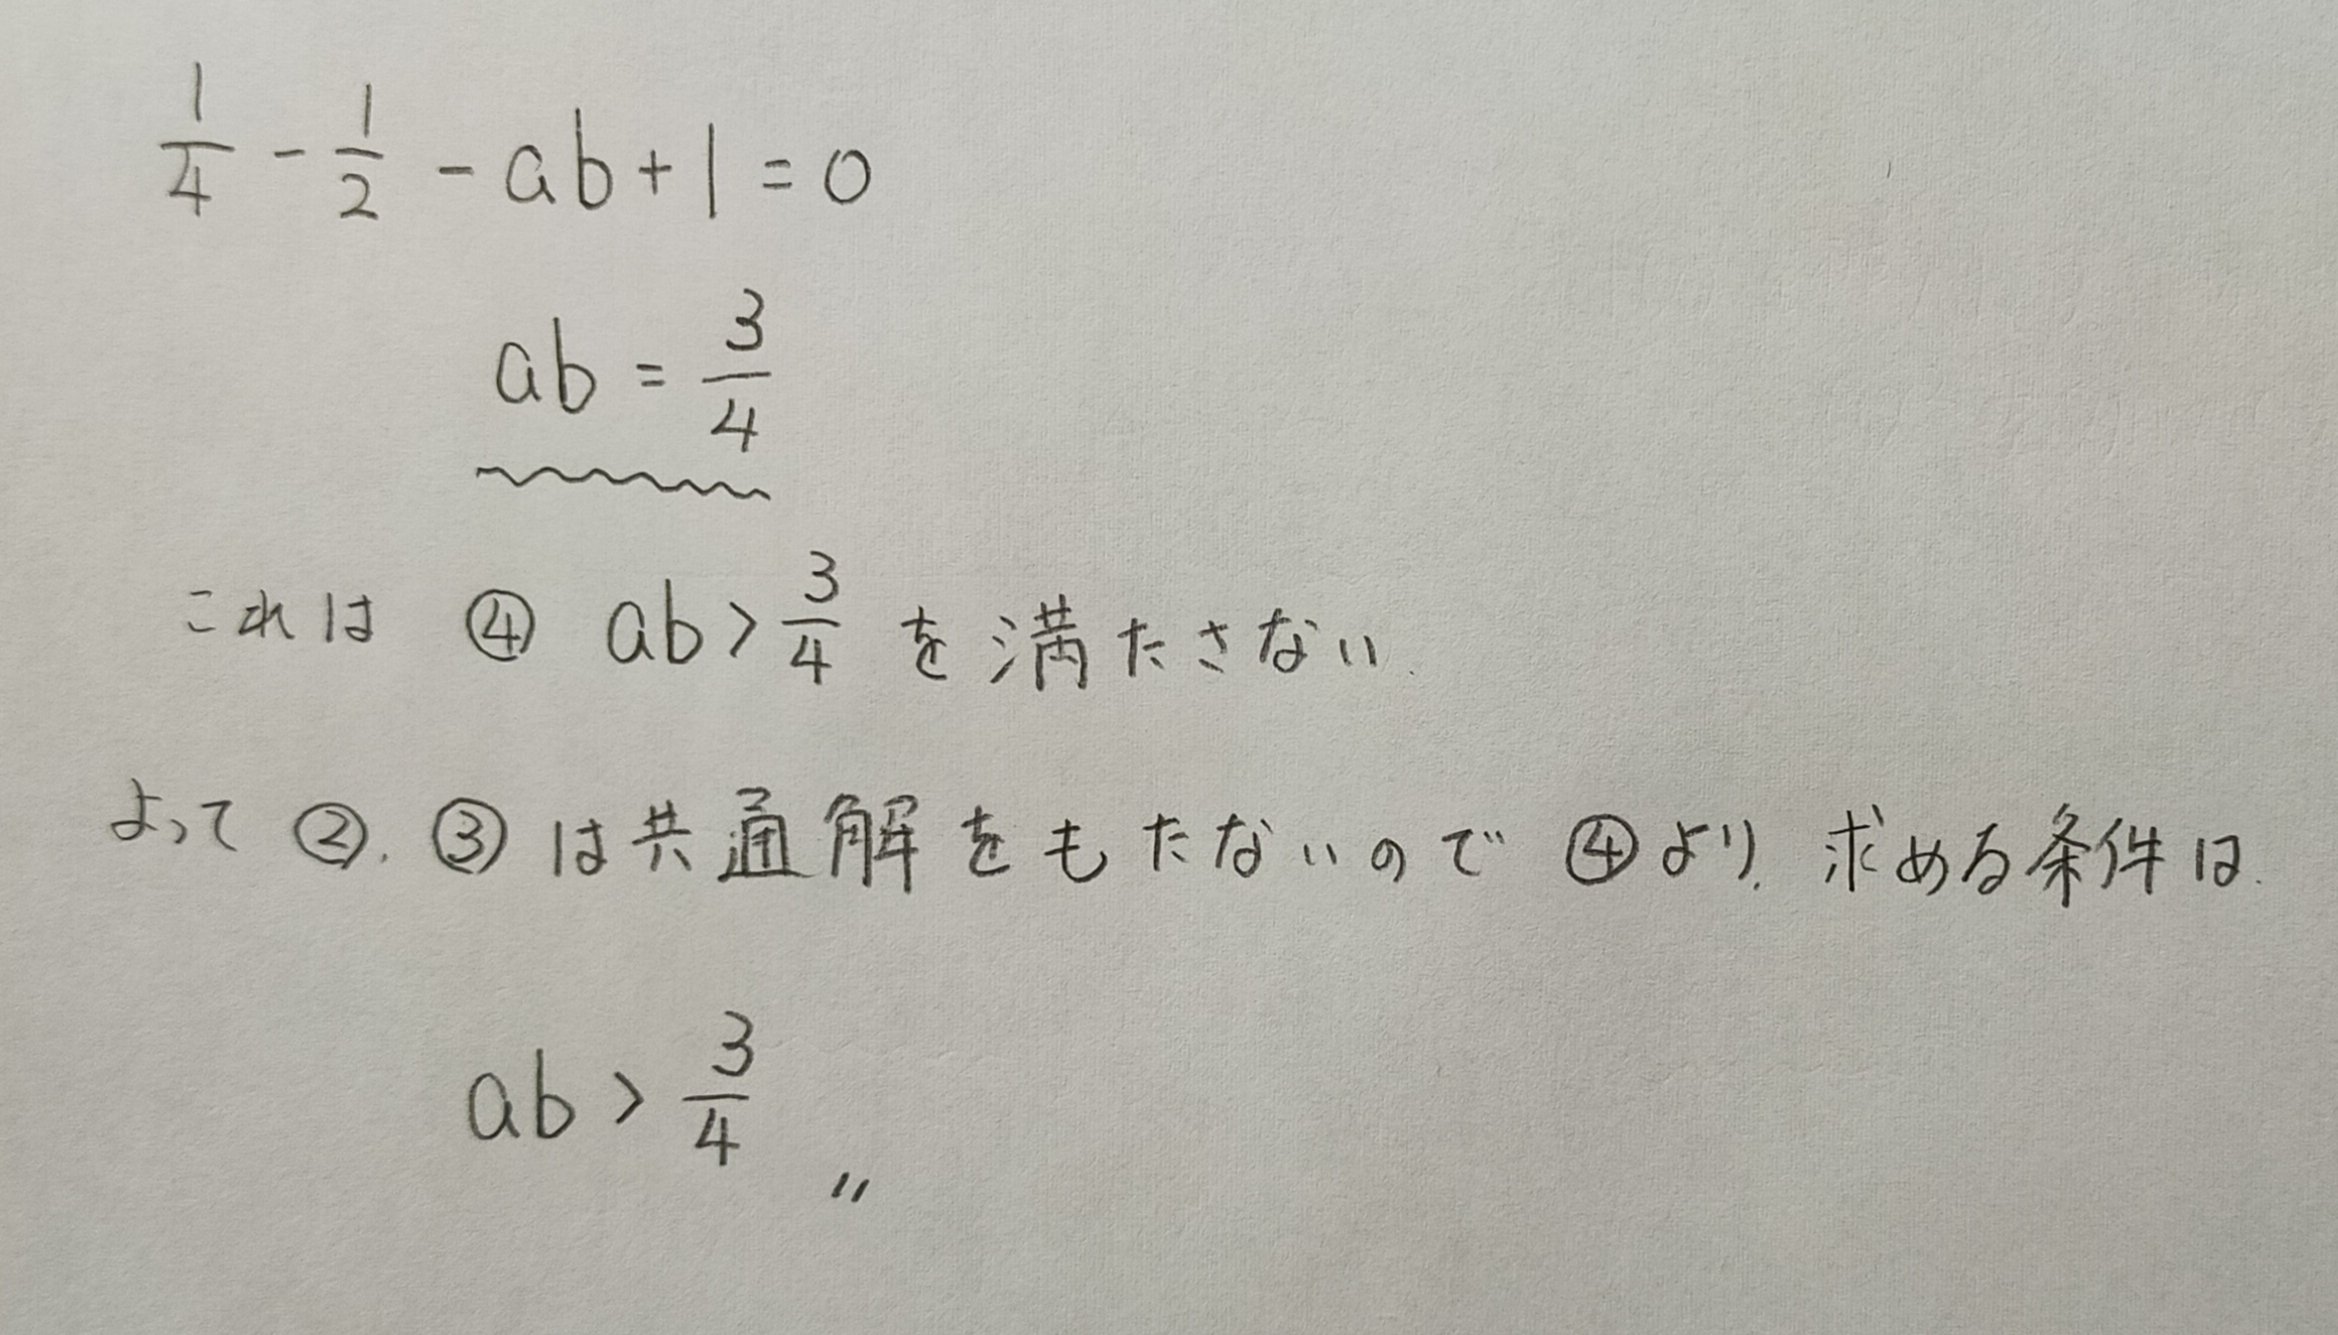 1/4 - 1/2 - ab + 1 = 0
ab = 3/4
これは ④ ab > 3/4 を満たさない.
よって ②, ③ は共通解をもたないので ④より, 求める条件は.
ab > 3/4 〃